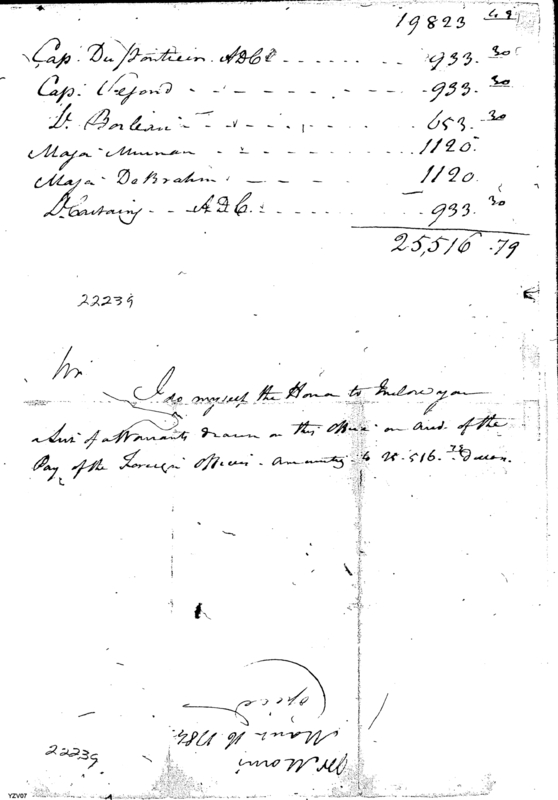 19823 49
Cap. Du Ponticen ADCt - - - - - - 933. 30
Cap. Segond - - - - - - - 933. 30
Lt. Borleau - - - - - - - 653. 30
Major Murnan - - - - - - 1120.
Major DeBrahm - - - - - 1120.
Lt. Castaing - - ADC. - - - - 933. 30
25,516 .79
22239
Sir
I do myself the Honor to Inclose you
a List of Warrants drawn on this Office on acct. of the
Pay of the Foreign Officers - amounting to 25.516. 79 Dollars.
Copied
March 16 1784
Mr Morris
22239
YZV07